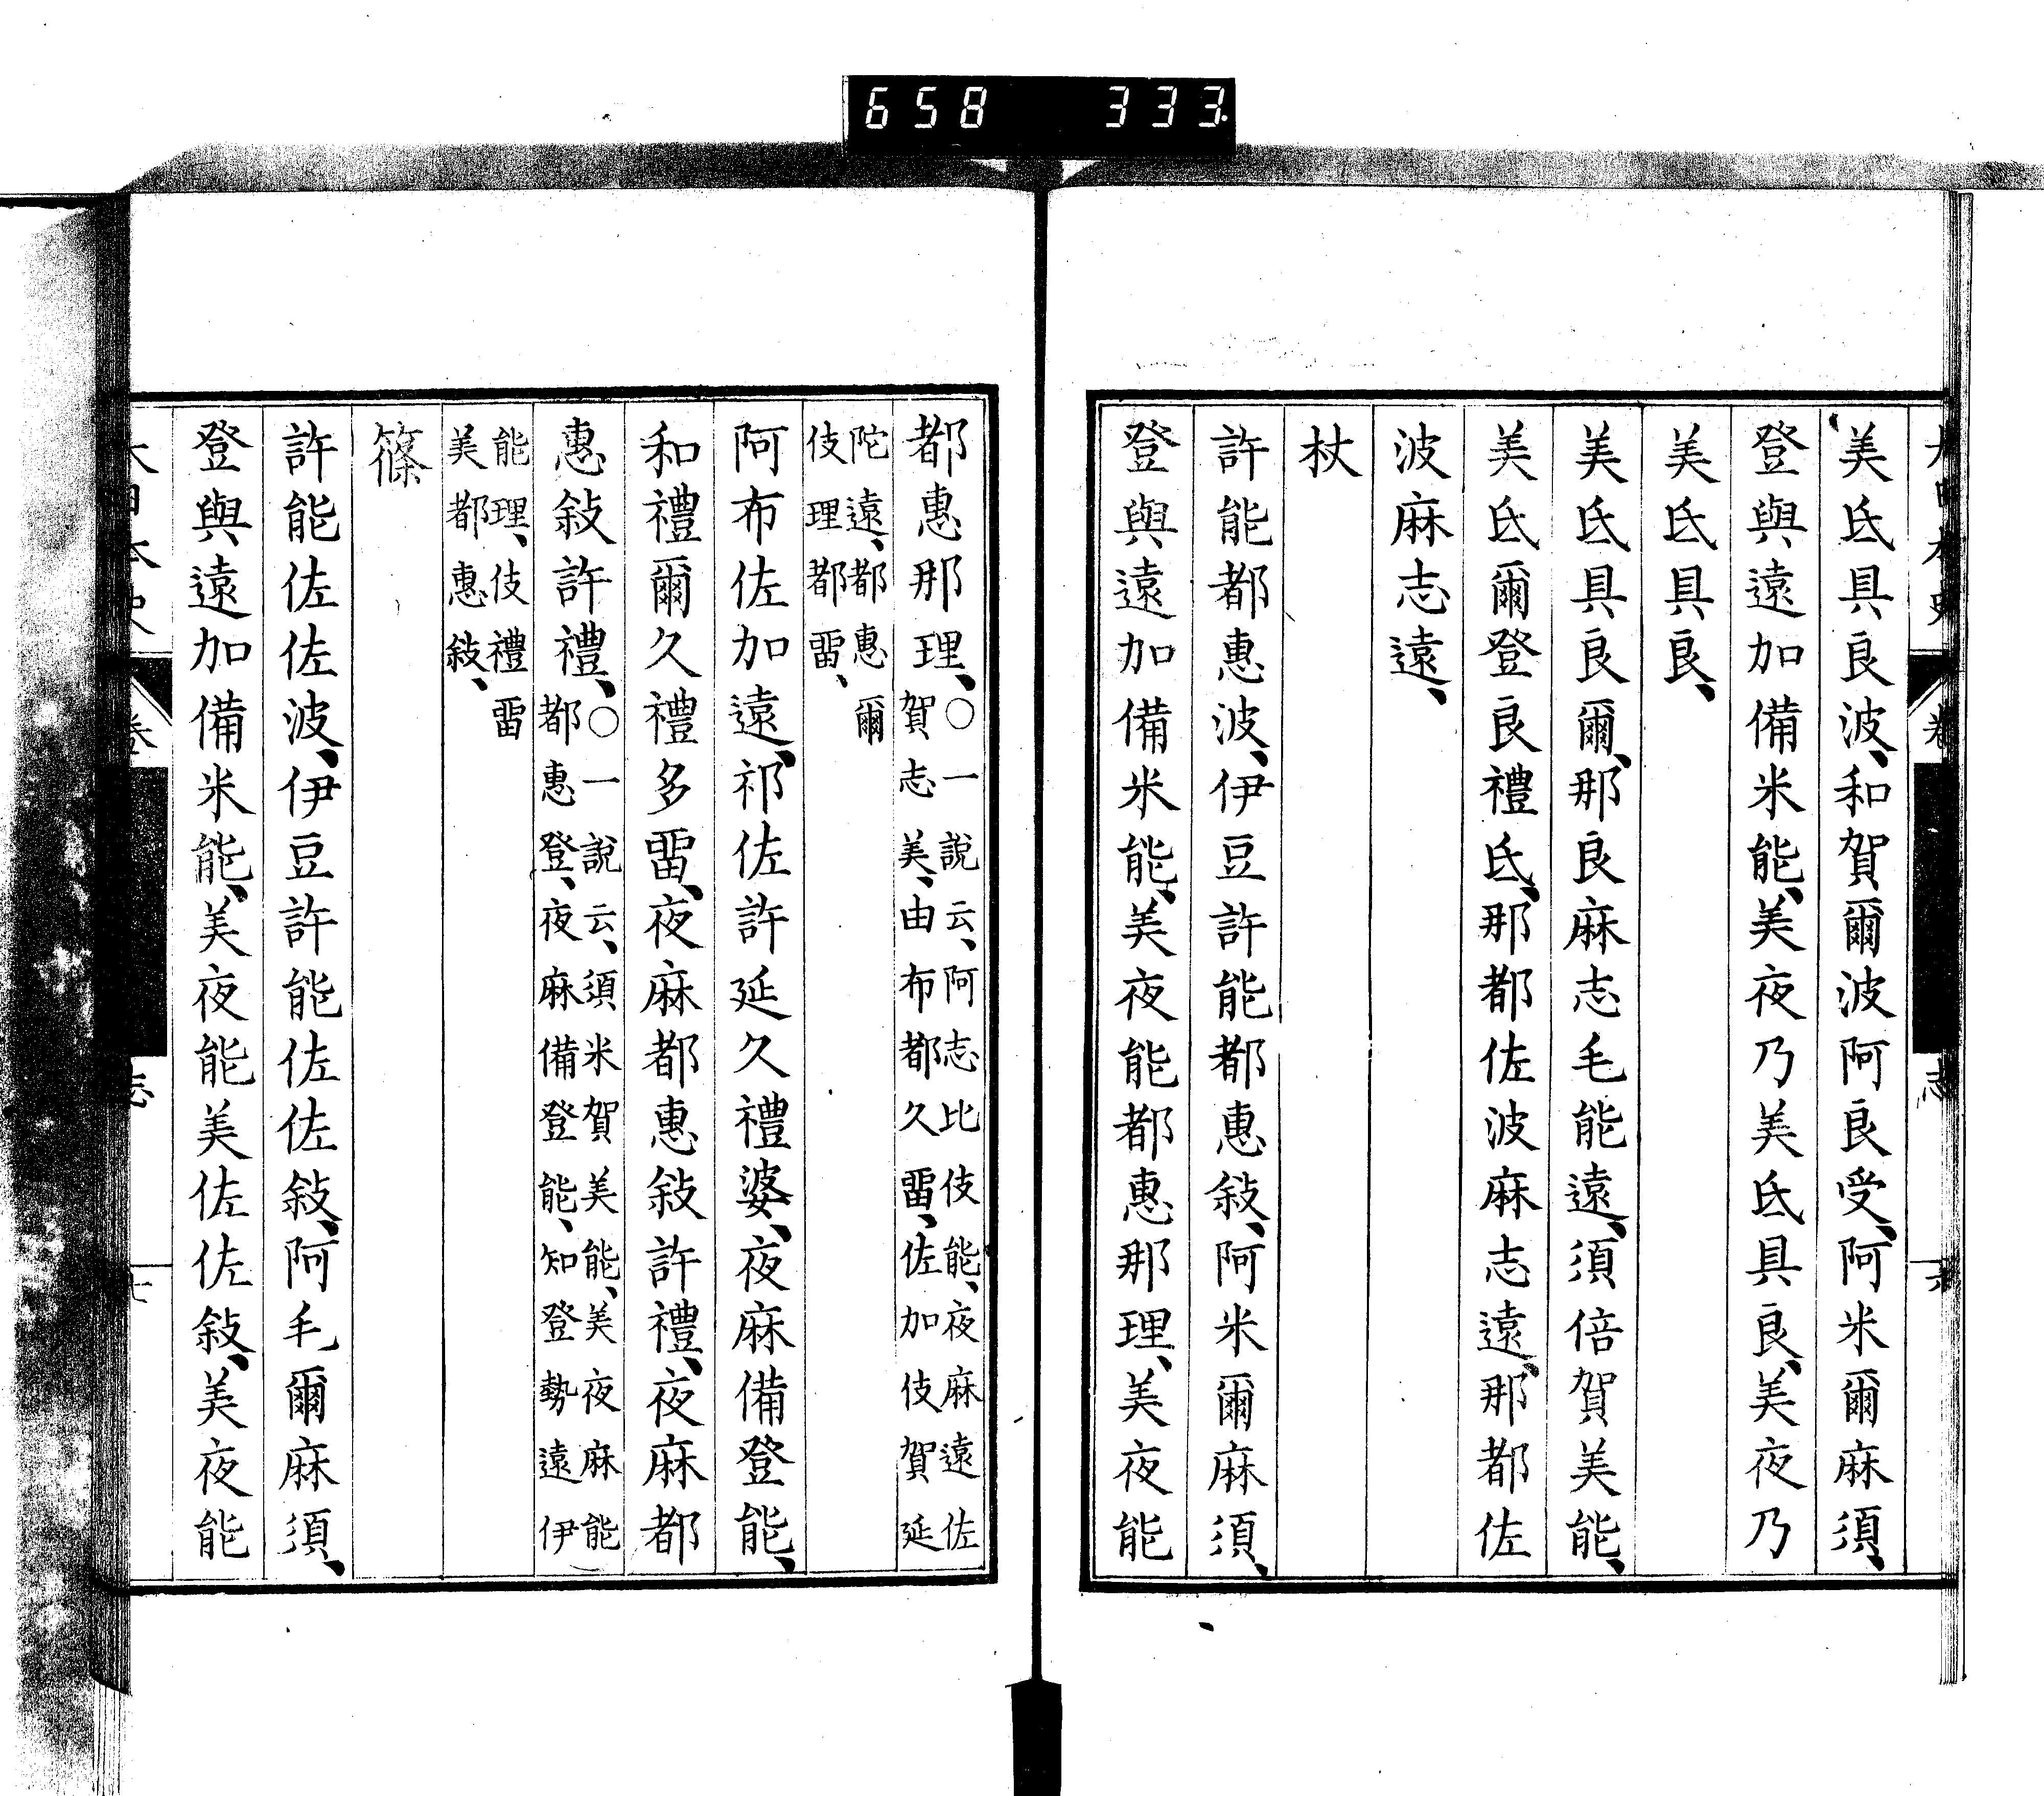 658 333
美氐具良波、和賀爾波阿良受、阿米爾麻須、
登與遠加備米能、美夜乃美氐具良、美夜乃
美氐具良、
美氐具良爾、那良麻志毛能遠、須倍賀美能、
美氐爾登良禮氐、那都佐波麻志遠、那都佐
波麻志遠、
杖
許能都惠波、伊豆許能都惠敍、阿米爾麻須、
登與遠加備米能、美夜能都惠那理、美夜能
都惠那理、○一說云、阿志比伎能、夜麻遠佐
賀志美、由布都久畱、佐加伎賀延
陀遠、都惠爾
伎理都畱、
阿布佐加遠、祁佐許延久禮婆、夜麻備登能、
和禮爾久禮多畱、夜麻都惠敍許禮、夜麻都
惠敍許禮、○一說云、須米賀美能、美夜麻能
都惠登、夜麻備登能、知登勢遠伊
能理、伎禮畱
美都惠敍、
篠
許能佐佐波、伊豆許能佐佐敍、阿毛爾麻須、
登與遠加備米能、美夜能美佐佐敍、美夜能